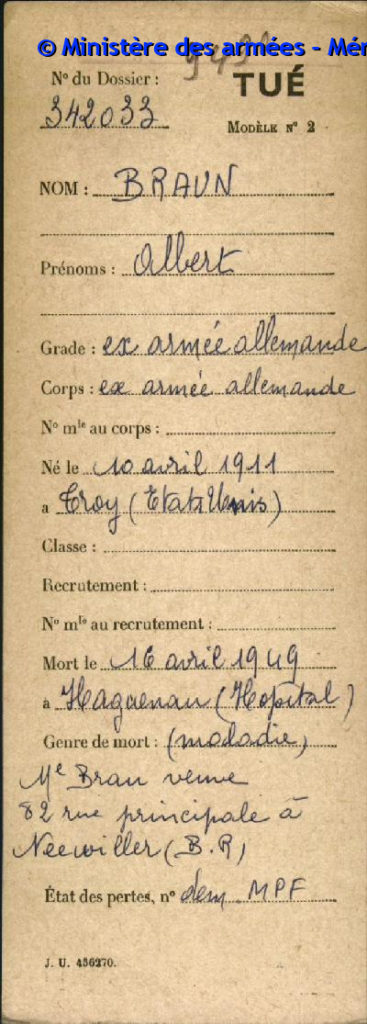 © Ministère des armées - Mé
N° du Dossier :
342033
TUÉ
MODÈLE N° 2
NOM : BRAUN
Prénoms : Albert
Grade : ex armée allemande
Corps : ex armée allemande
N° mle au corps :
Né le 10 avril 1911
a Troy (Etats Unis)
Classe :
Recrutement :
N° mle au recrutement :
Mort le 16 avril 1949
à Haguenau (Hopital)
Genre de mort : (maladie)
Me Braun veuve
82 rue principale à
Neewiller (B.R)
État des pertes, n° dem MPF
J. U. 456270.